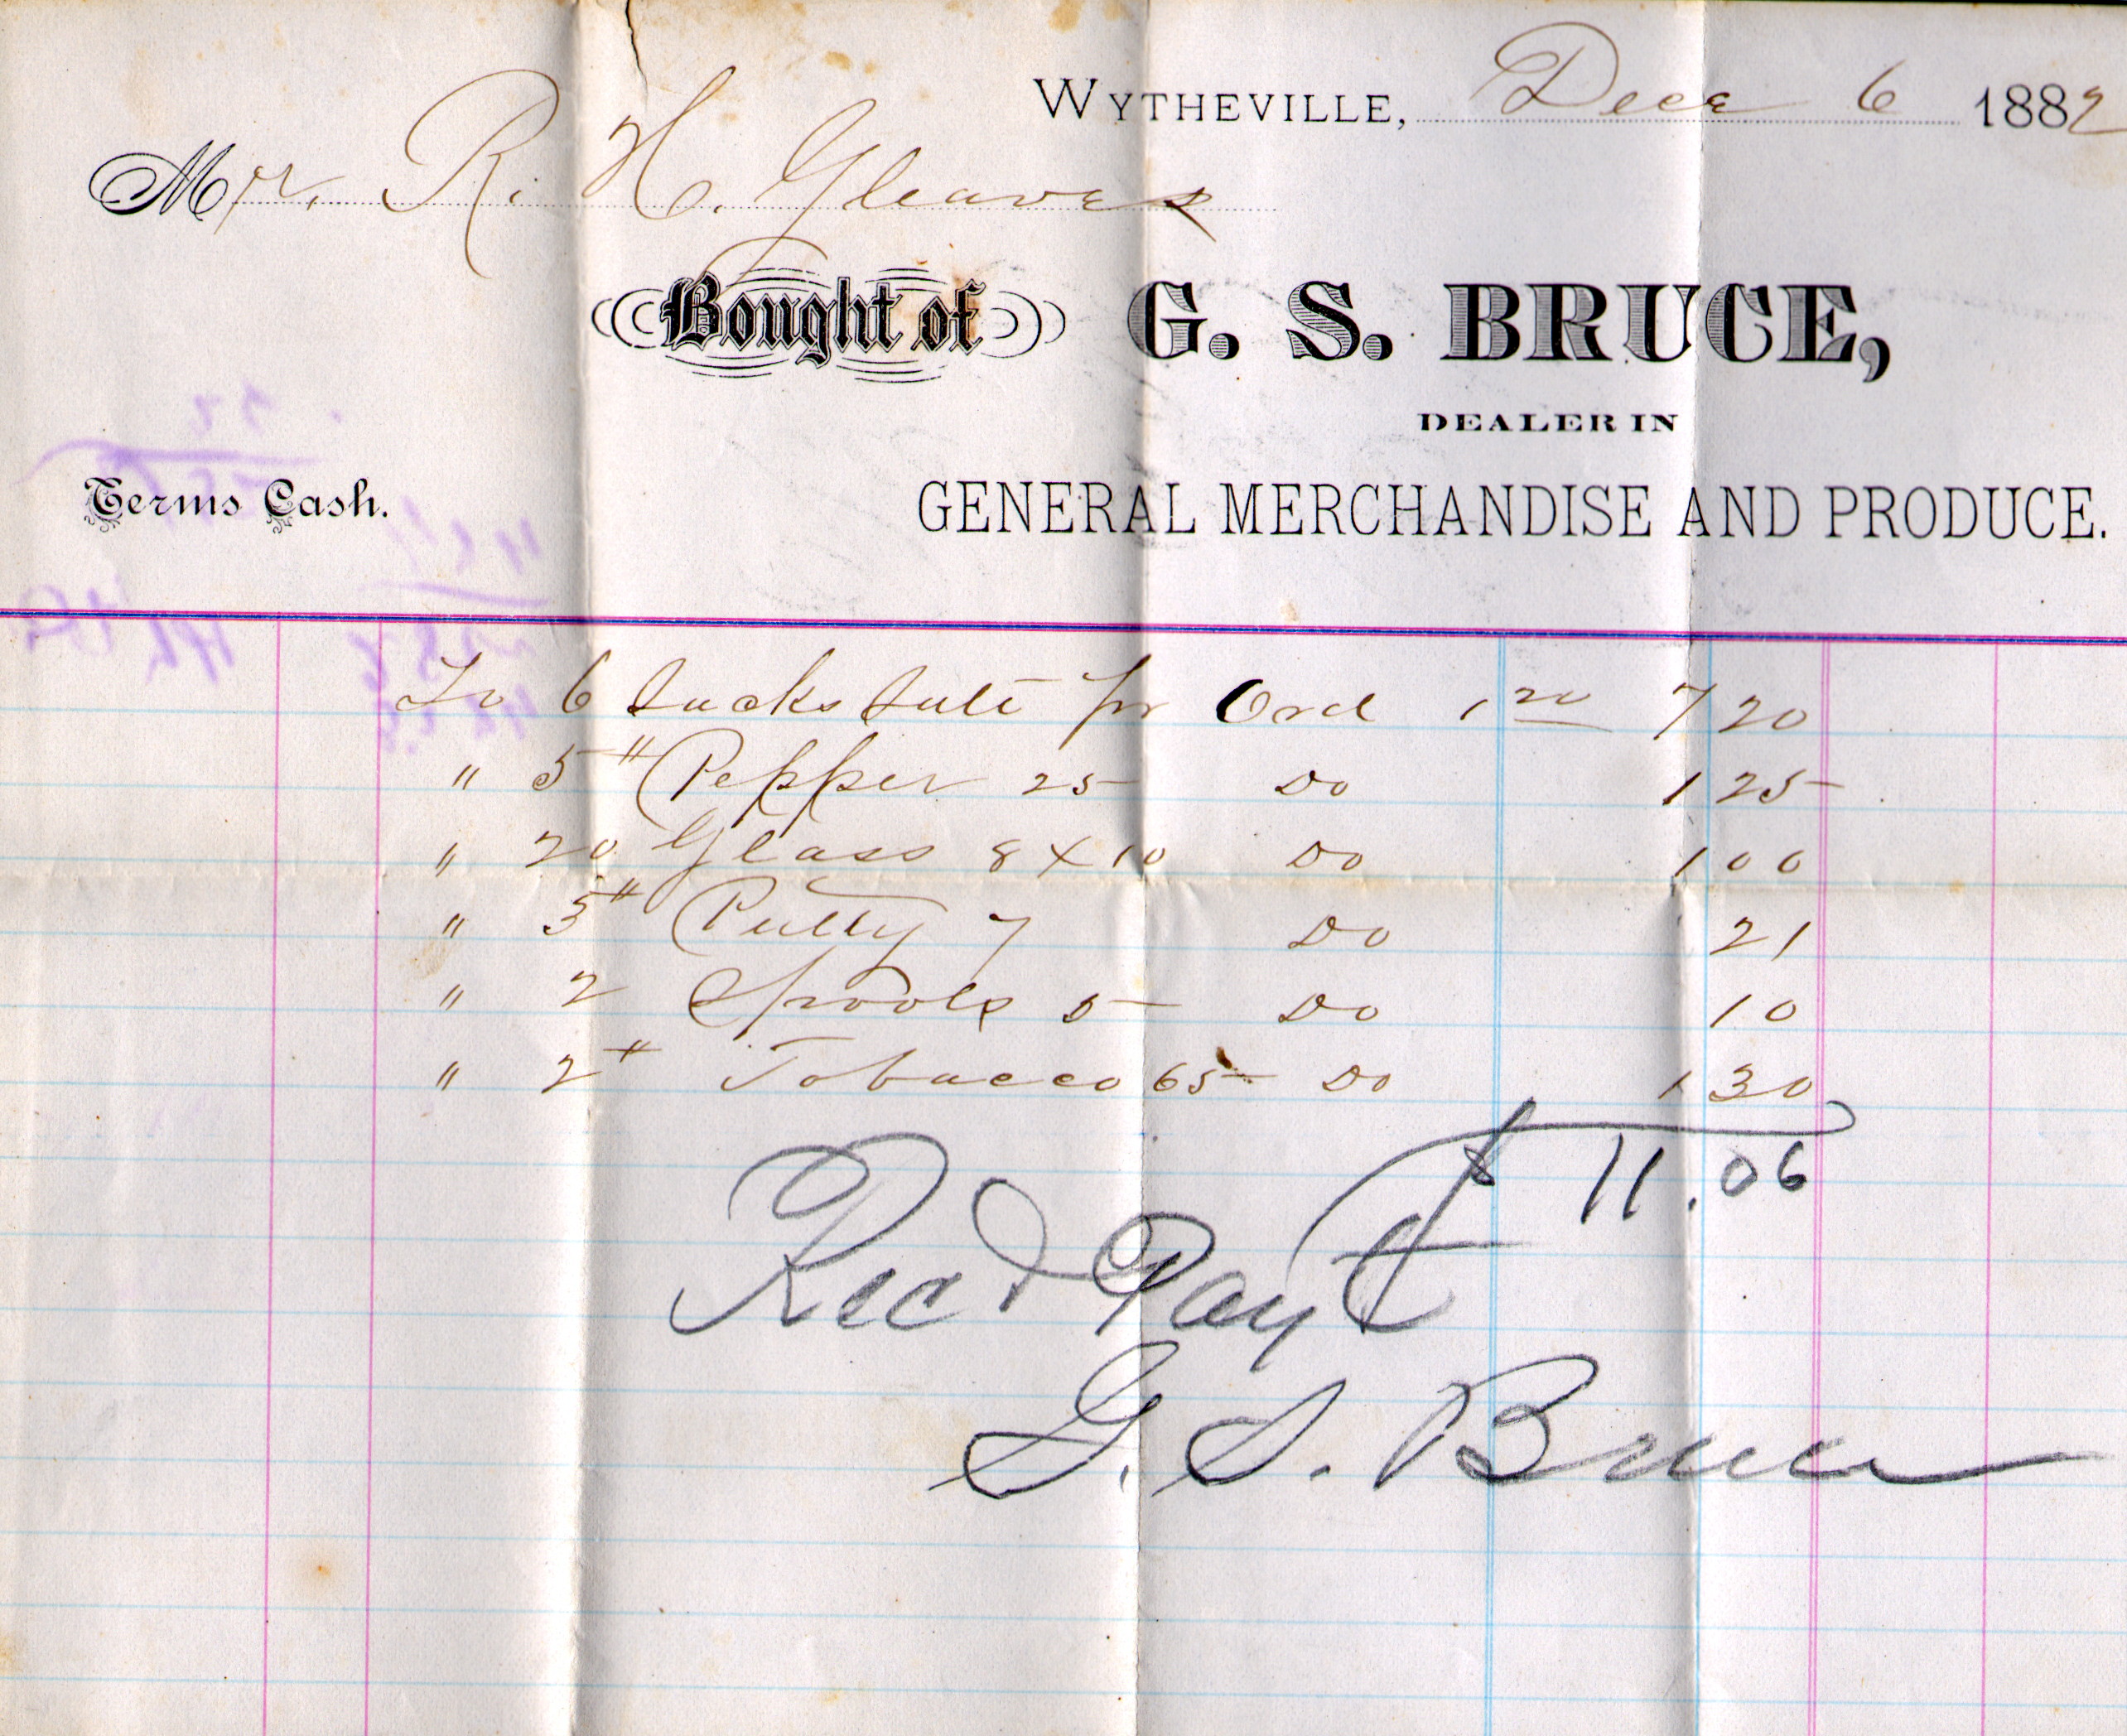 WYTHEVILLE, Dec 6 1882
Mr. R. H. Gleaves
Bought of G. S. BRUCE,
DEALER IN
Terms Cash. GENERAL MERCHANDISE AND PRODUCE.
To 6 Sacks Salt pr Ord 1 20 7 20
" 5 # Pepper 25 Do 1 25
" 20 Glass 8 X 10 Do 1 00
" 3 # Putty 7 Do 21
" 2 Spools 5 Do 10
" 2 # Tobacco 65 Do 1 30
$ 11.06
Recd Payt
G. S. Bruce